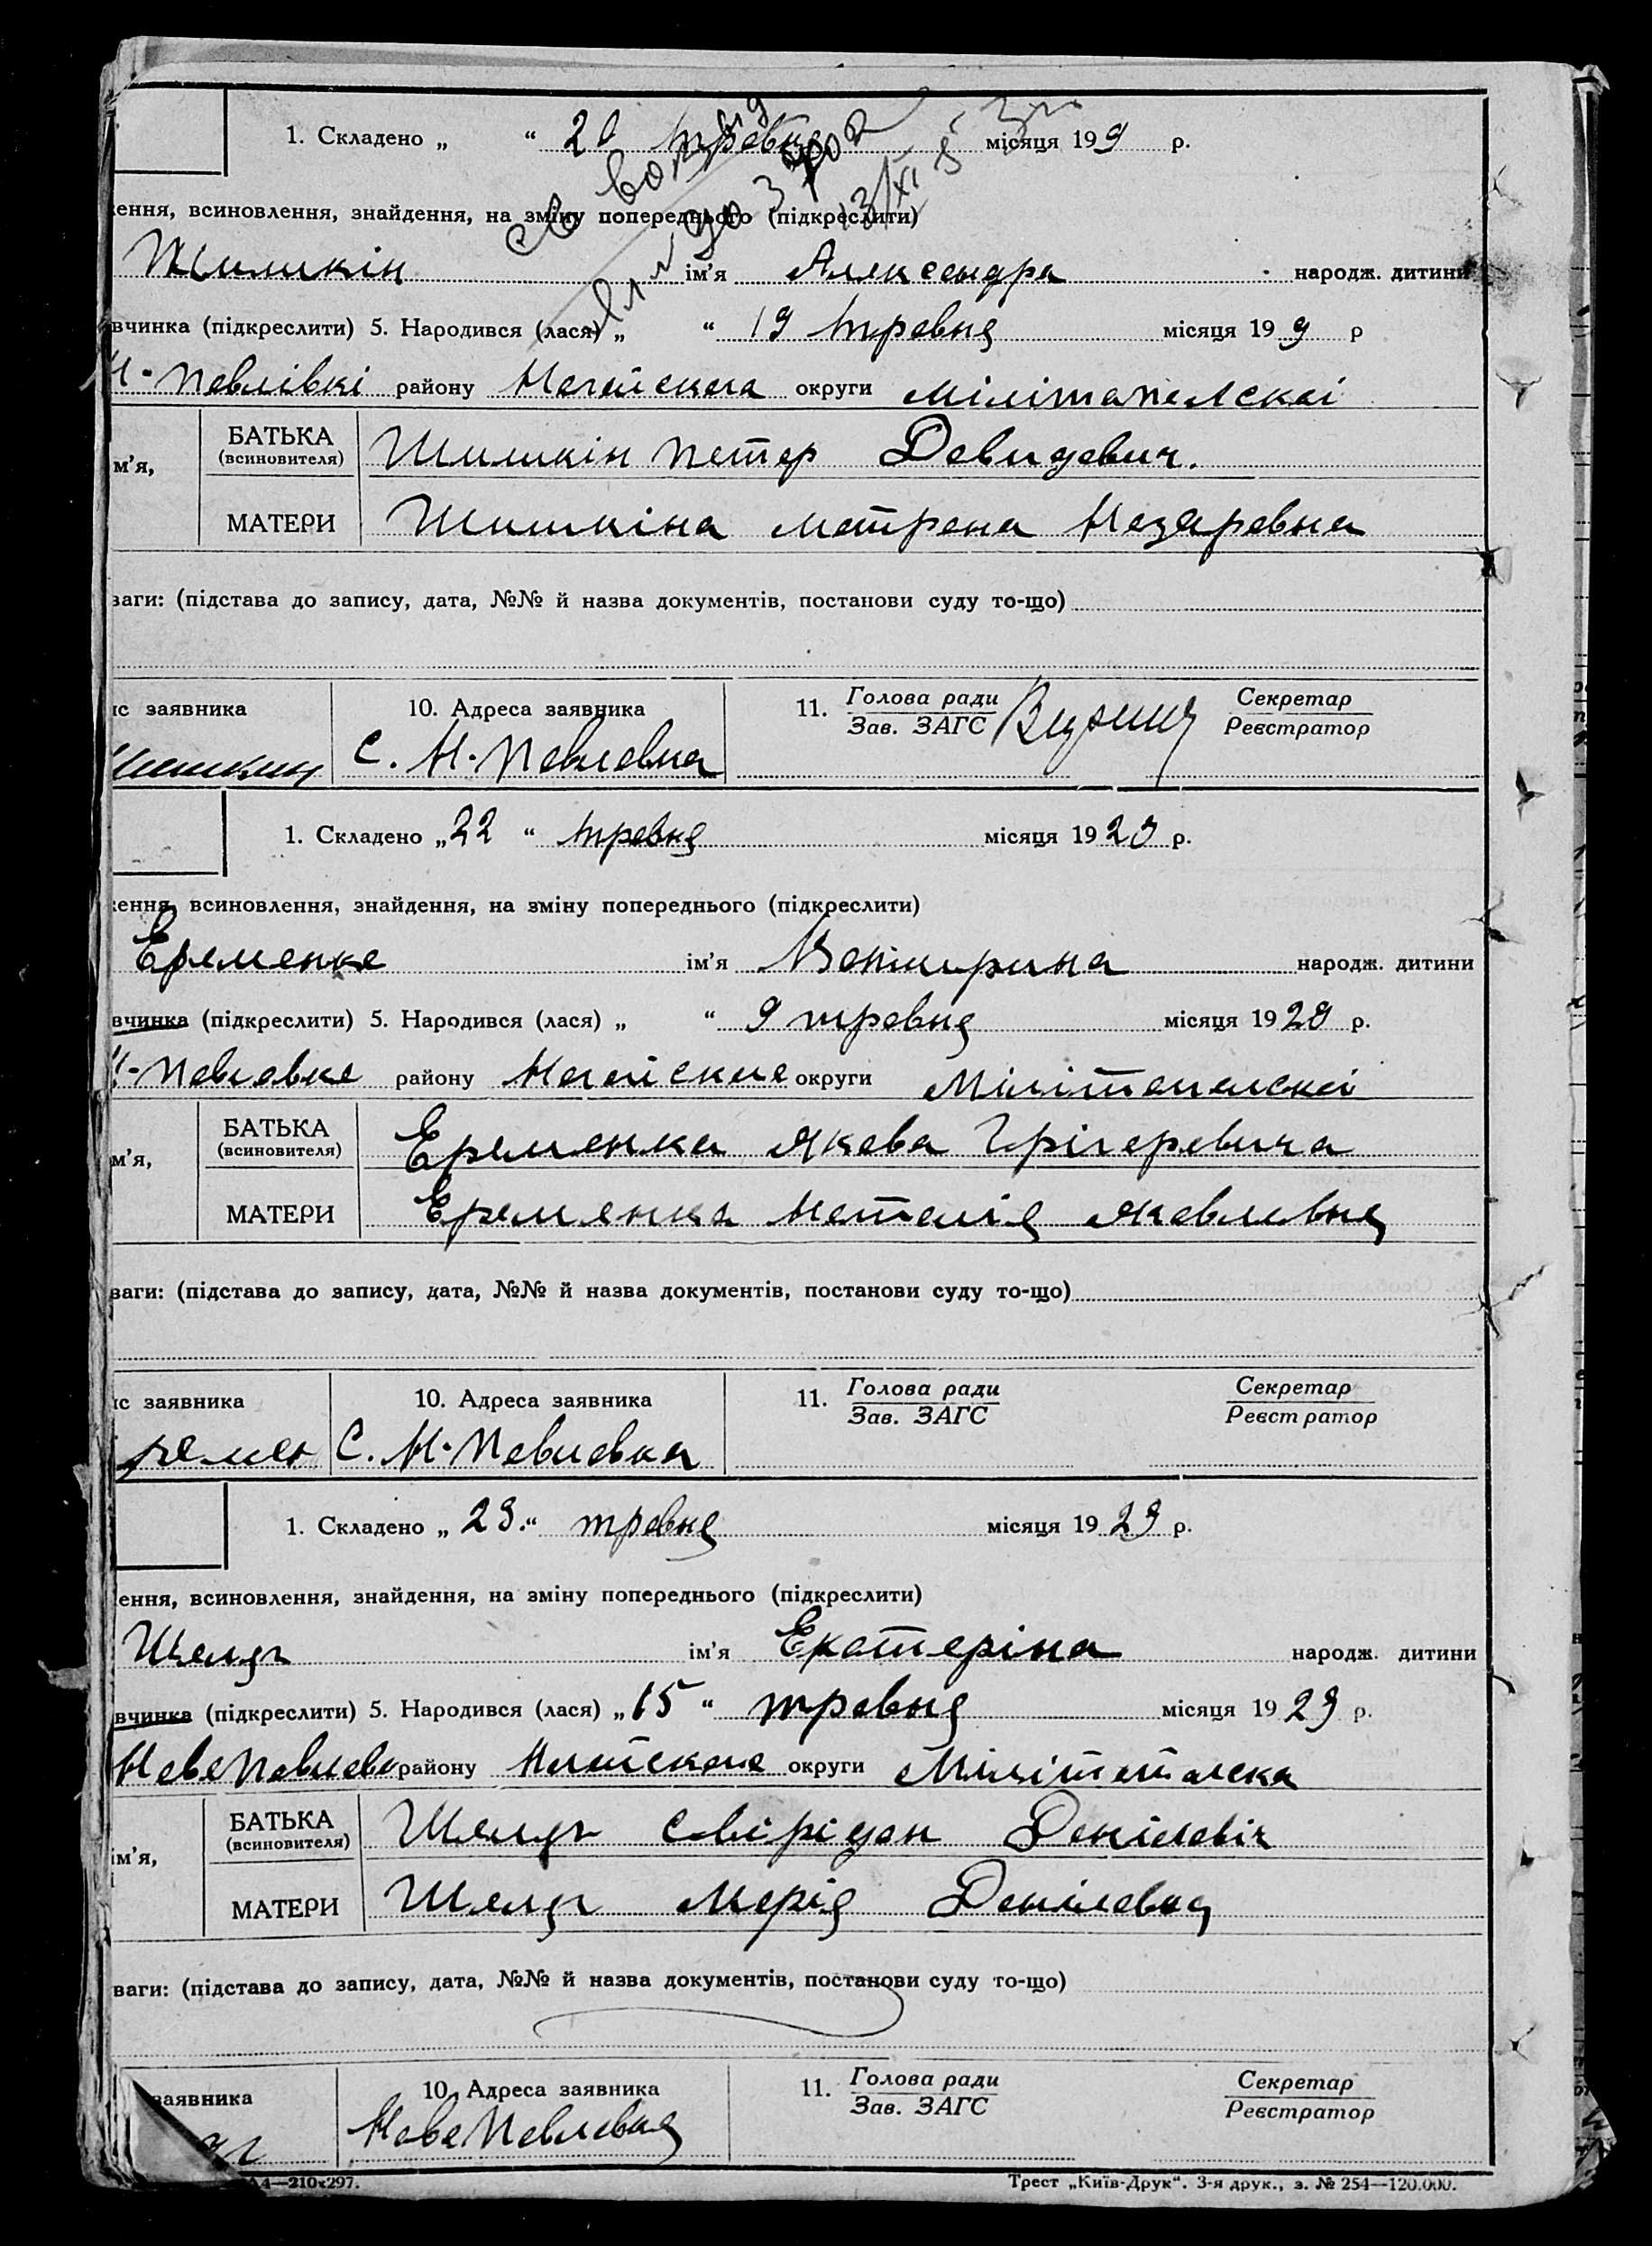 1. Складено „ “ 20 травня місяця 199 р.
ення, всиновлення, знайдення, на зміну попереднього (підкреслити)
Шишкін ім’я Александра народж. дитини
вчинка (підкреслити) 5. Народився (лася) „ “ 19 травня місяця 199 р
Н-Павлівкі району Нагайскага округи Мілітапелскаі
м’я, БАТЬКА (всиновителя) Шишкін Петер Давидавич.
МАТЕРИ Шишкіна Матрена Назаревна
ваги: (підстава до запису, дата, №№ й назва документів, постанови суду то-що)
ис заявника 10. Адреса заявника 11. Голова ради Секретар
Зав. ЗАГС Реєстратор
Шишкин С. Н-Павлавка
1. Складено „22 “ травня місяця 1929 р.
ення, всиновлення, знайдення, на зміну попереднього (підкреслити)
Еременке ім’я народж. дитини
вчинка (підкреслити) 5. Народився (лася) „ “ 9 травня місяця 1929 р.
Н-Павлавке району округи
м’я, БАТЬКА (всиновителя) Еременка Якава Грігеревича
МАТЕРИ Еременка Наталія Якавлевна
ваги: (підстава до запису, дата, №№ й назва документів, постанови суду то-що)
ис заявника 10. Адреса заявника 11. Голова ради Секретар
Зав. ЗАГС Реєстратор
ремен С. Н-Павлавка
1. Складено „ 23.“ травня місяця 1929 р.
ення, всиновлення, знайдення, на зміну попереднього (підкреслити)
ім’я Екатеріна народж. дитини
вчинка (підкреслити) 5. Народився (лася) „15 “ травня місяця 1929 р.
НавеПавлавк району округи
ім’я, БАТЬКА (всиновителя) Свірідан Данілавіч
МАТЕРИ Марія Данілавна
ваги: (підстава до запису, дата, №№ й назва документів, постанови суду то-що)
заявника 10. Адреса заявника 11. Голова ради Секретар
Зав. ЗАГС Реєстратор
НавеПавлавка
А4—210x297. Трест „Київ-Друк“. 3-я друк., з. № 254—120.000.